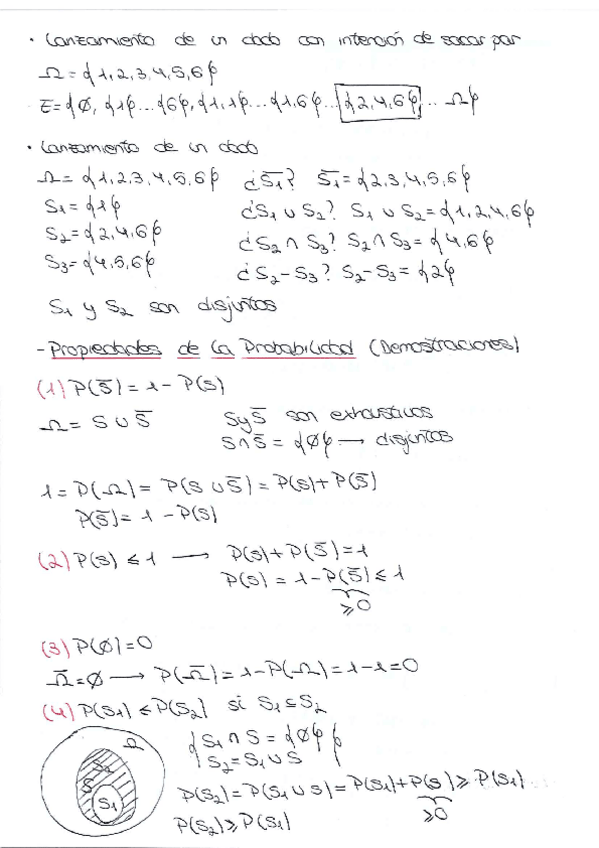 · Lanzamiento de un dado con intención de sacar par
Ω = {1,2,3,4,5,6}
E = {∅, {1}...{6}, {1,1}...{1,6}...{2,4,6}... Ω}
· Lanzamiento de un dado
Ω = {1,2,3,4,5,6} ¿S̅₁? S̅₁ = {2,3,4,5,6}
S₁ = {1} ¿S₁ ∪ S₂? S₁ ∪ S₂ = {1,2,4,6}
S₂ = {2,4,6} ¿S₂ ∩ S₃? S₂ ∩ S₃ = {4,6}
S₃ = {4,5,6} ¿S₂ - S₃? S₂ - S₃ = {2}
S₁ y S₂ son disjuntos
- Propiedades de la Probabilidad (Demostraciones)
(1) P(S̅) = 1 - P(S)
Ω = S ∪ S̅ S y S̅ son exhaustivos
S ∩ S̅ = {∅} → disjuntos
1 = P(Ω) = P(S ∪ S̅) = P(S) + P(S̅)
P(S̅) = 1 - P(S)
(2) P(S) ≤ 1 → P(S) + P(S̅) = 1
P(S) = 1 - P(S̅) ≤ 1
≥0
(3) P(∅) = 0
Ω̅ = ∅ → P(Ω̅) = 1 - P(Ω) = 1 - 1 = 0
(4) P(S₁) ≤ P(S₂) si S₁ ⊆ S₂
{S₁ ∩ S = {∅}}
S₂ = S₁ ∪ S
Ω
S₂
S
S₁
P(S₂) = P(S₁ ∪ S) = P(S₁) + P(S) ≥ P(S₁)
≥0
P(S₂) ≥ P(S₁)